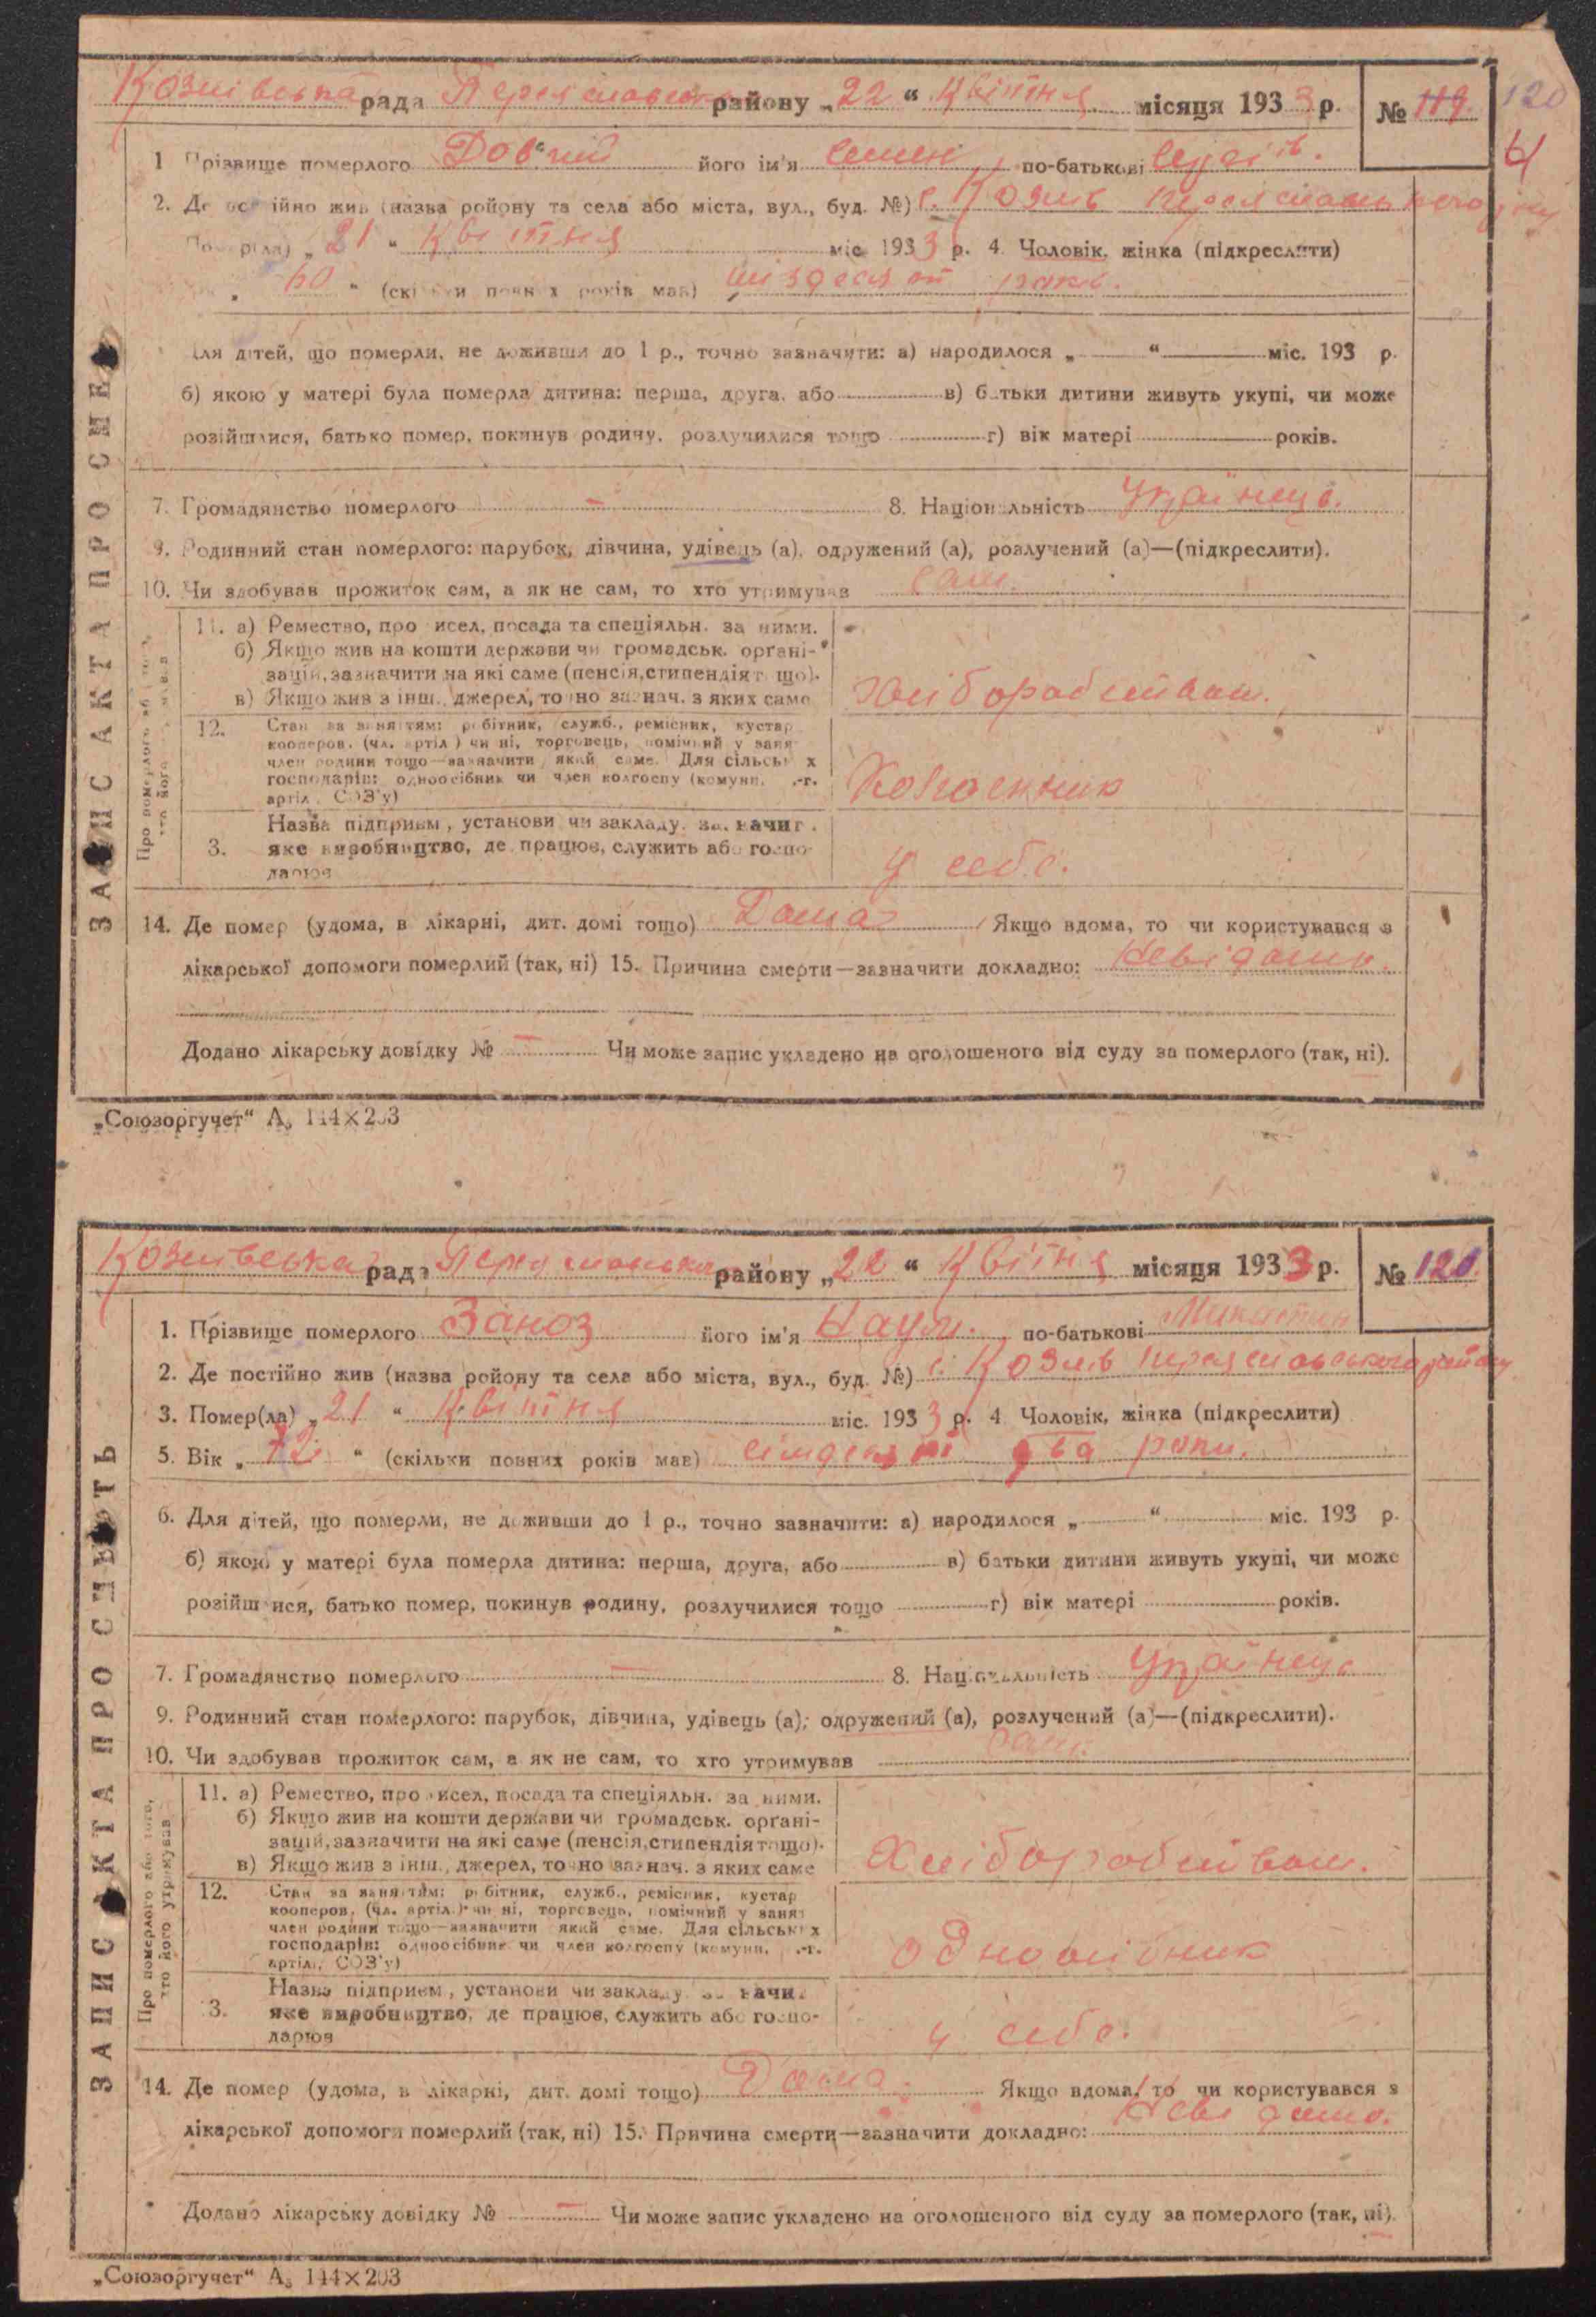 Козлівська рада Переяславського району „22“ Квітня місяця 1933 р. № 119. 120
1 Прізвище померлого Довгий його ім'я Семен, по-батькові Сергіїв.
2. Де постійно жив (назва ройону та села або міста, вул., буд. №) с. Козлів Переяславського району
Помер(ла) „21“ Квітня міс. 1933 р. 4. Чоловік, жінка (підкреслити)
„60“ (скільки повних років мав) шісдесят років.
Для дітей, що померли, не доживши до 1 р., точно зазначити: а) народилося „ “ міс. 193 р.
б) якою у матері була померла дитина: перша, друга, або в) батьки дитини живуть укупі, чи може
розійшлися, батько помер, покинув родину, розлучилися тощо г) вік матері років.
7. Громадянство померлого — 8. Національність Українець.
9. Родинний стан померлого: парубок, дівчина, удівець (а), одружений (а), розлучений (а)—(підкреслити).
10. Чи здобував прожиток сам, а як не сам, то хто утримував сам.
ЗАПИС АКТА ПРО СМЕ
Про померлого або того,
хто його утримував
11. а) Ремество, про исел, посада та спеціяльн. за ними.
б) Якщо жив на кошти держави чи громадськ. органі-
зацій, зазначити на які саме (пенсія, стипендія т що).
в) Якщо жив з інш., джерел, то но зазнач. з яких саме
Хліборобством.
12. Стан за заняттям: робітник, служб., ремісник, кустар
кооперов. (чл. артіл.) чи ні, торговець, помічний у занят
член родини тощо—зазначити який саме. Для сільськ х
господарів: одноосібник чи член колгоспу (комуни, .-г.
артіл., СОЗ'у)
Колгоспник
3. Назва підприєм., установи чи закладу. зазначит.
яке виробництво, де працює, служить або госпо-
дарює
у себе.
14. Де помер (удома, в лікарні, дит. домі тощо) Дома Якщо вдома, то чи користувався з
лікарської допомоги померлий (так, ні) 15. Причина смерти—зазначити докладно: Невідомо.
Додано лікарську довідку № — Чи може запис укладено на оголошеного від суду за померлого (так, ні).
„Союзоргучет“ А₅ 144×203
Козлівська рада Переяславського району „22“ Квітня місяця 1933 р. № 120.
1. Прізвище померлого Заноз його ім'я Наум, по-батькові
2. Де постійно жив (назва ройону та села або міста, вул., буд. №) с. Козлів Переяславського району
3. Помер(ла) „21“ Квітня міс. 1933 р. 4 Чоловік, жінка (підкреслити)
5. Вік „72“ (скільки повних років мав) сімдесят два роки.
6. Для дітей, що померли, не доживши до 1 р., точно зазначити: а) народилося „ “ міс. 193 р.
б) якою у матері була померла дитина: перша, друга, або в) батьки дитини живуть укупі, чи може
розійш ися, батько помер, покинув родину, розлучилися тощо г) вік матері років.
7. Громадянство померлого — 8. Національність Українець
9. Родинний стан померлого: парубок, дівчина, удівець (а); одружений (а), розлучений (а)—(підкреслити).
10. Чи здобував прожиток сам, а як не сам, то хто утримував сам.
ЗАПИС АКТА ПРО СМЕРТЬ
Про померлого або того,
хто його утримував
11. а) Ремество, про исел, посада та спеціяльн. за ними.
б) Якщо жив на кошти держави чи громадськ. органі-
зацій, зазначити на які саме (пенсія, стипендія тощо).
в) Якщо жив з інш., джерел, то но зазнач. з яких саме
Хліборобством.
12. Стан за заняттям: робітник, служб., ремісник, кустар
кооперов. (чл. артіл.) чи ні, торговець, помічний у занят
член родини тощо—зазначити який саме. Для сільськ х
господарів: одноосібник чи член колгоспу (комуни, .-г.
артіл., СОЗ'у)
одноосібник
3. Назва підприєм., установи чи закладу. зазначи.
яке виробництво, де працює, служить або госпо-
дарює
у себе.
14. Де помер (удома, в лікарні, дит. домі тощо) Дома. Якщо вдома, то чи користувався з
лікарської допомоги померлий (так, ні) 15. Причина смерти—зазначити докладно: Невідомо.
Додано лікарську довідку № — Чи може запис укладено на оголошеного від суду за померлого (так, ні).
„Союзоргучет“ А₅ 144×203